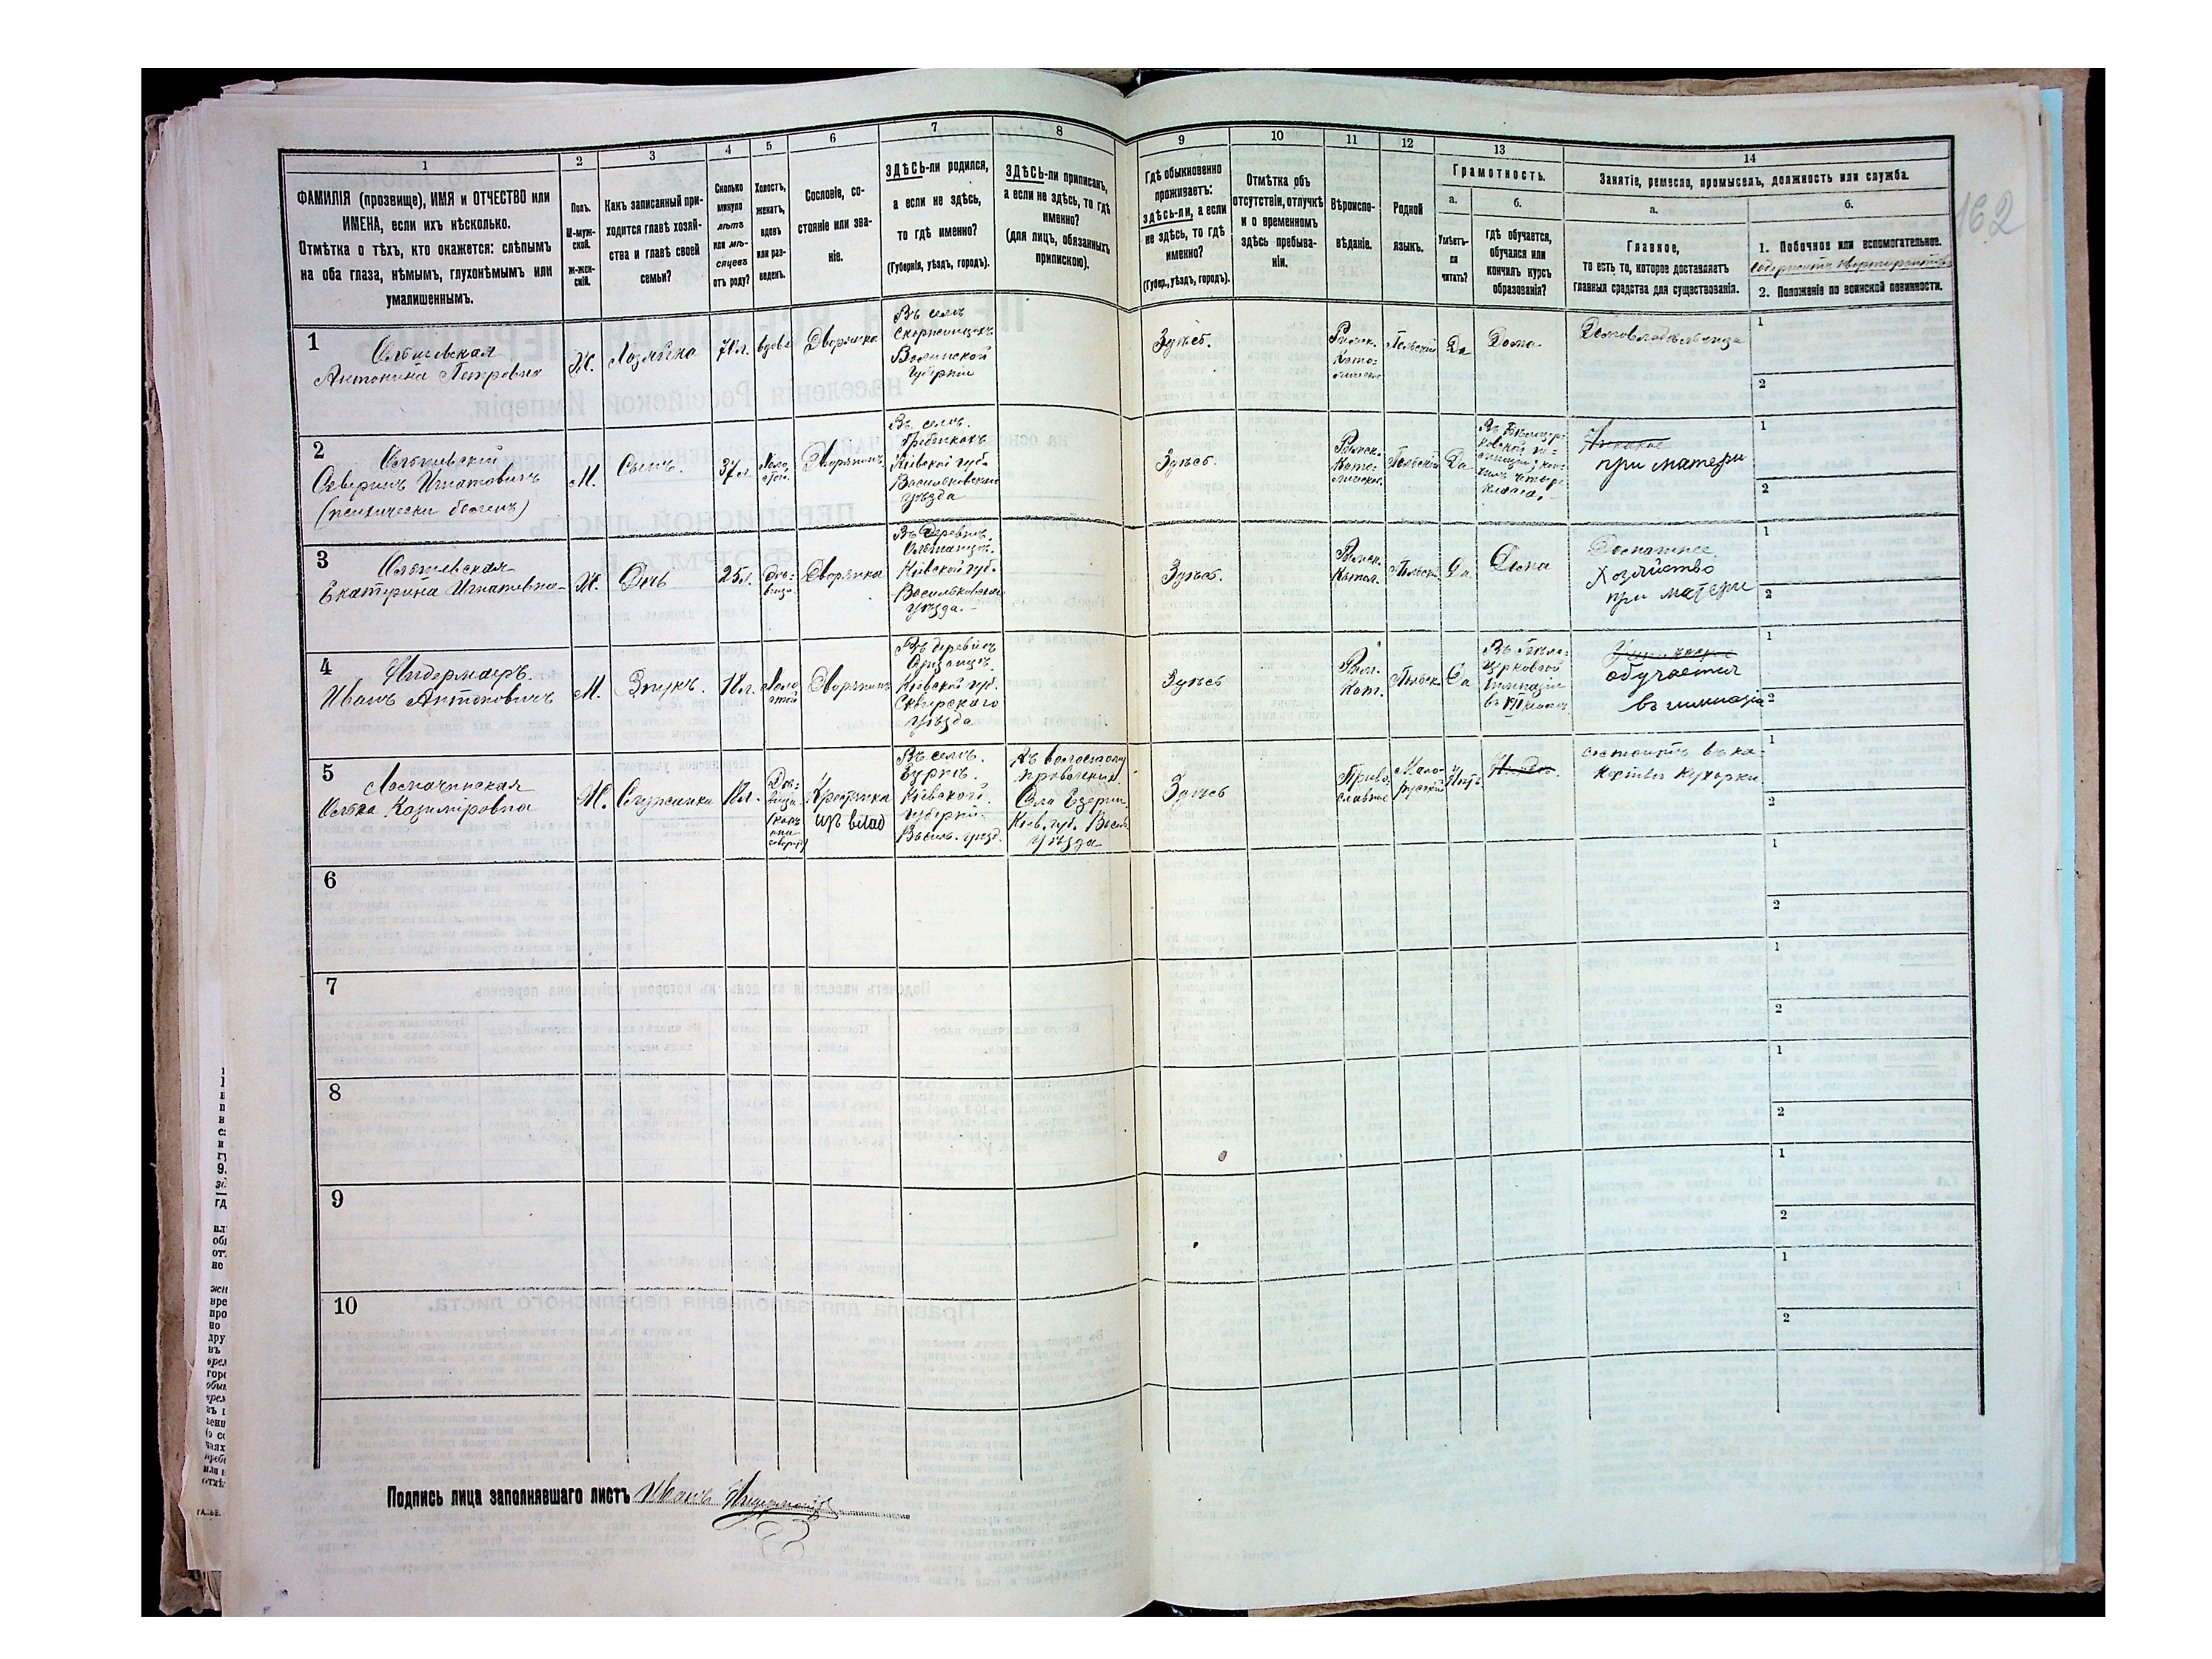 162
1
2
3
4
5
6
7
8
9
10
11
12
13
14
ФАМИЛІЯ (прозвище), ИМЯ и ОТЧЕСТВО или
ИМЕНА, если ихъ нѣсколько.
Отмѣтка о тѣхъ, кто окажется: слѣпымъ
на оба глаза, нѣмымъ, глухонѣмымъ или
умалишеннымъ.
Полъ.
М-муж-
ской.
Ж-жен-
скій.
Какъ записанный при-
ходится главѣ хозяй-
ства и главѣ своей
семьи?
Сколько
минуло
лѣтъ
или мѣ-
сяцевъ
отъ роду?
Холостъ,
женатъ,
вдовъ
или раз-
веденъ.
Сословіе, со-
стояніе или зва-
ніе.
ЗДѢСЬ-ли родился,
а если не здѣсь,
то гдѣ именно?
(Губернія, уѣздъ, городъ).
ЗДѢСЬ-ли приписанъ,
а если не здѣсь, то гдѣ
именно?
(для лицъ, обязанныхъ
припискою).
Гдѣ обыкновенно
проживаетъ:
здѣсь-ли, а если
не здѣсь, то гдѣ
именно?
(Губер., уѣздъ, городъ).
Отмѣтка объ
отсутствіи, отлучкѣ
и о временномъ
здѣсь пребыва-
ніи.
Вѣроиспо-
вѣданіе.
Родной
языкъ.
Грамотность.
а.
Умѣетъ-
ли
читать?
б.
гдѣ обучается,
обучался или
кончилъ курсъ
образованія?
Занятіе, ремесло, промыселъ, должность или служба.
а.
Главное,
то есть то, которое доставляетъ
главныя средства для существованія.
б.
1. Побочное или вспомогательное.
2. Положеніе по воинской повинности.
1
Антонина Петровна
Ж.
Хозяйка
70 л.
вдова
Дворянка
Въ селѣ
Волынской
губерніи
Здѣсь.
Римск.
Като-
лическое
Польскій
Да
Дома
Домовладѣлица
1
2
2
Северинъ Игнатовичъ
(психически боленъ)
М.
Сынъ.
37 л.
Холо-
стой.
Дворянинъ
Въ селѣ.
Гребенкахъ
Кіевской губ.
Васильковскаго
уѣзда
Здѣсь.
Римск.
Като-
лическое.
Польскій
Да
Въ Бѣлоцер-
ковской ги-
мназіи; кон-
чилъ четыре
класса.
при матери
1
2
3
Екатерина Игнатовна
Ж.
Дочь
25 л.
Дѣ-
вица.
Дворянка
Въ деревнѣ.
Кіевской губ.
Васильковскаго
уѣзда.
Здѣсь.
Римск.
Катол.
Польскій
Да.
Дома
Домашнее
Хозяйство
при матери
1
2
4
Нидермаеръ.
Иванъ Антоновичъ
М.
Внукъ.
18 л.
Холо-
стой
Дворянинъ
Въ деревнѣ
Кіевской губ.
Сквирскаго
уѣзда
Здѣсь
Рим.
Кат.
Польск.
Да
Въ Бѣло-
церковской
Гимназіи
обучается
въ гимназіи
1
2
5
Казиміровна
Ж.
Служанка
Дѣ-
вица
Крестьянка
Въ селѣ.
Кіевской.
губерніи
Василь. уѣзд.
Кіев. губ. Васил.
уѣзда
Здѣсь
Право-
славное
Мало-
русскій
Нѣтъ
состоитъ въ ка-
чествѣ кухарки.
1
2
6
1
2
7
1
2
8
1
2
9
1
2
10
1
2
Подпись лица заполнявшаго листъ Иванъ